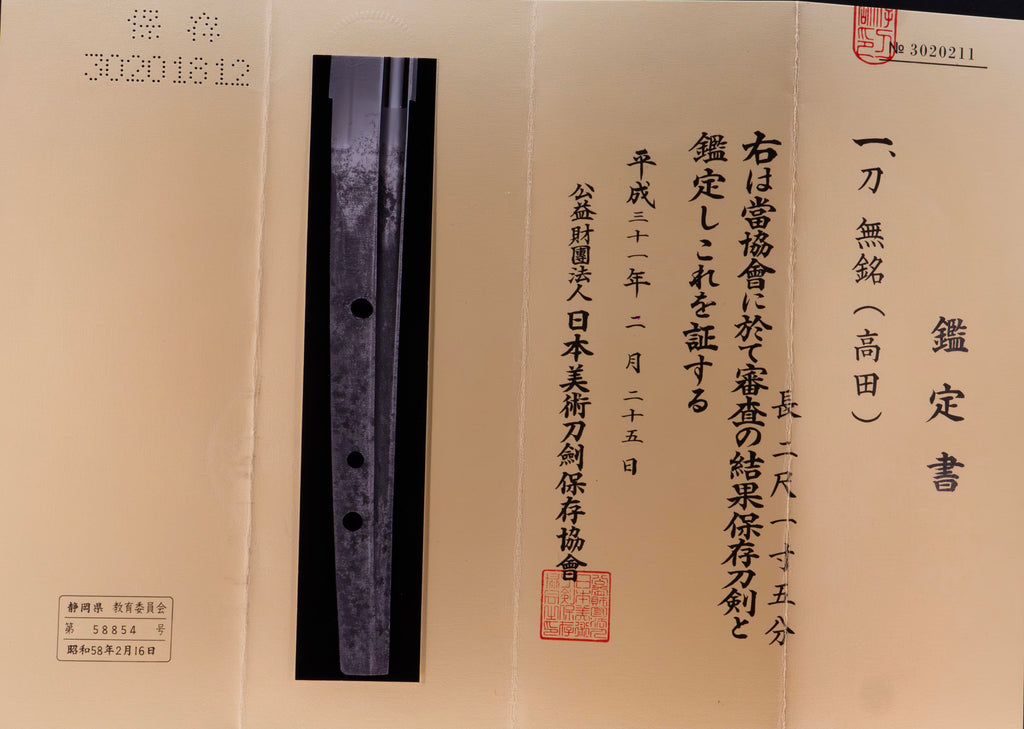 № 3020211
鑑定書
一、刀 無銘(高田)
長 二尺一寸五分
右は當協會に於て審査の結果保存刀剣と
鑑定しこれを証する
平成三十一年 二 月 二十五 日
公益財團法人 日本美術刀劍保存協會
保存
30201812
静岡県 教育委員会
第 58854 号
昭和58年2月16日